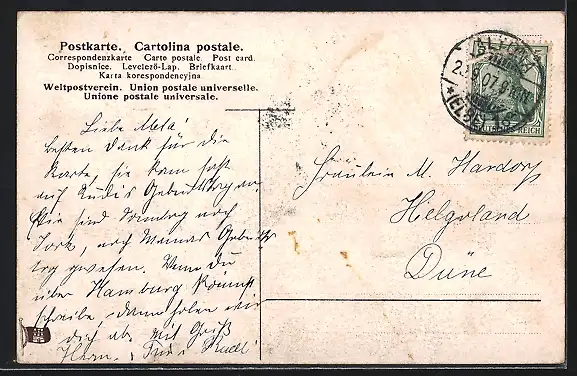 Postkarte. Cartolina postale.
Correspondenzkarte Carte postale. Post card.
Dopisnice. Levelező-Lap. Briefkaart.
Karta korespondencyjna
Weltpostverein. Union postale universelle.
Unione postale universale.
Liebe Meta!
Besten Dank für die
Karte, sie kam fast
auf Rudis Geburtstag an.
Wir sind Sonntag nach
York, nach Mamas Geburts
tag gewesen. Wenn Du
über Hamburg kommst
schreibe dann holen wir
dich ab. Mit Gruß
Rudi
Fräulein M. Hardorp
Helgoland
Düne
07
(ELBE)
REICH